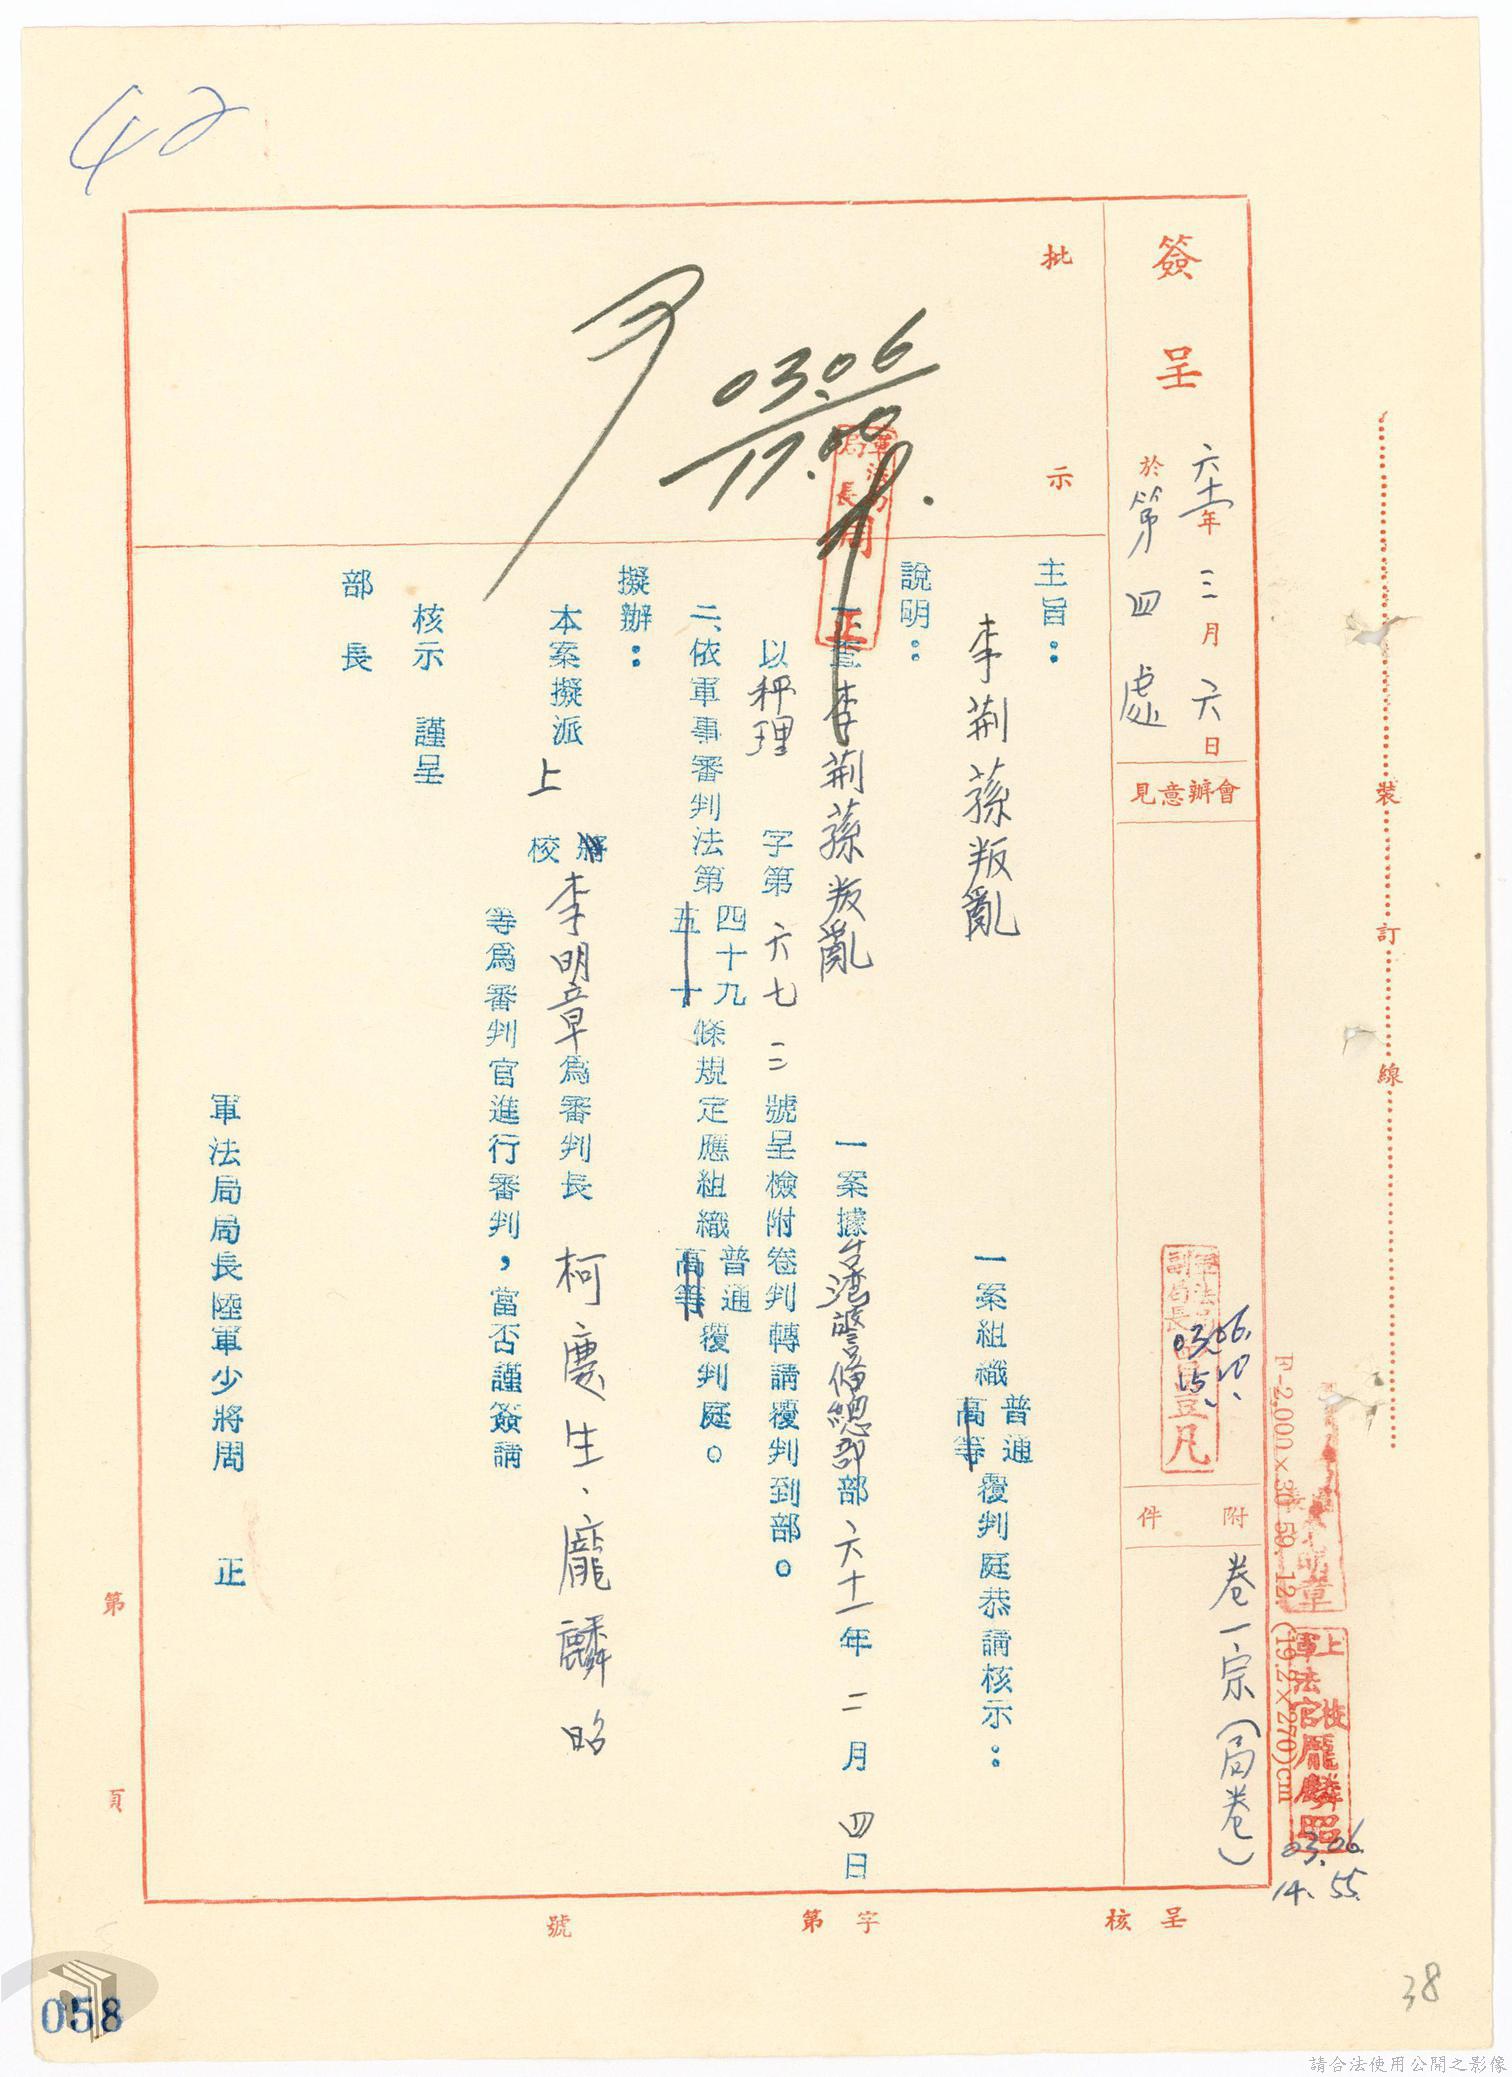 42
簽呈
六十一年三月六日
於第四處
會辦意見
附件
卷一宗(局卷)
批示
03.06
17.00
軍法局局長周正
主旨:
李荊蓀叛亂 一案組織普通高等覆判庭恭請核示:
說明:
一、查李荊蓀叛亂 一案據台灣警備總部部六十一年二月四日
以秤理 字第六七三號呈檢附卷判轉請覆判到部。
二、依軍事審判法第四十九五十條規定應組織普通高等覆判庭。
擬辦:
本案擬派上將校李明章為審判長 柯慶生、龐麟昭
等為審判官進行審判,當否謹簽請
核示 謹呈
部長
軍法局局長陸軍少將周 正
軍法局副局長
03.06.
15.
裝訂線
F-2,000×30 59. 12. (19.2×270)cm
明章
上校軍法官龐麟昭
03.06.
14.55.
呈核
字第
號
第 頁
38
058
請合法使用公開之影像